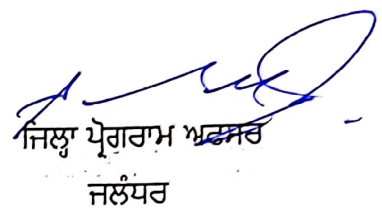 ਜਿਲ੍ਹਾ ਪ੍ਰੋਗਰਾਮ ਅਫਸਰ
ਜਲੰਧਰ